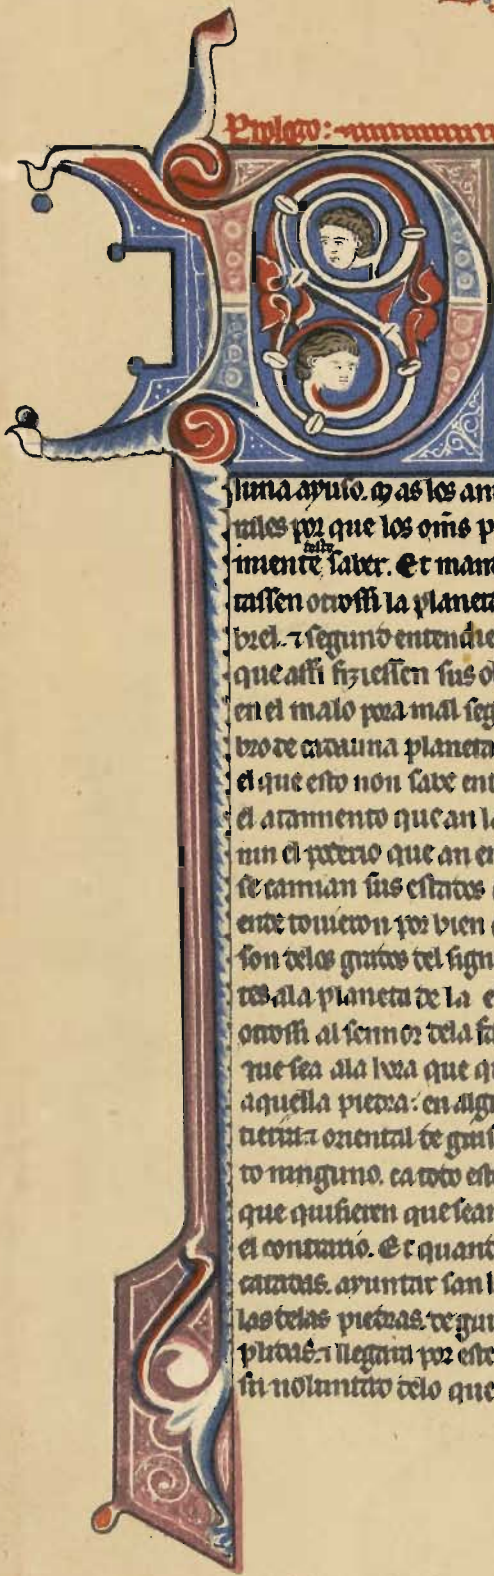 Prologo:
luna ayuso. mas los an
niles por que los om̄s p
imiente toste saber. Et man
tassen otrossi la planeta
brel. ⁊ segund entendie
que assi fiziessen sus ob
en el malo pora mal seg
bro de cadauna planeta
el que esto non sabe ent
el atannimento que an la
nin el poderio que an en
se camian sus estados
ende touieron por bien
son delos grados del sign
tes ala planeta de la e
otrossi al sennor dela fa
que sea ala hora que qu
aquella piedra: en algu
tierra ⁊ oriental de guis
to ninguno. ca todo est
que quisieren que sean
el contrario. Et quand
catadas. ayuntar san l
las delas piedras. de gui
plidas. ⁊ llegara por este
su uoluntad delo que